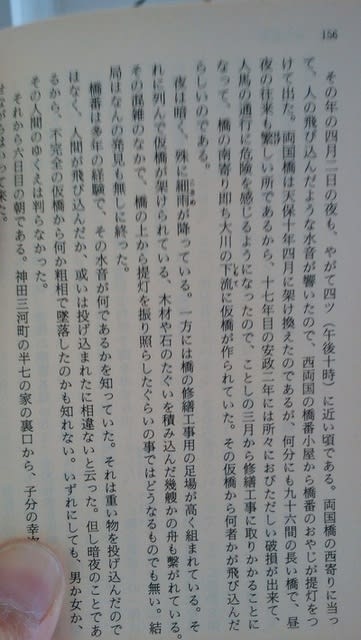 156
その年の四月二日の夜も、やがて四ツ(午後十時)に近い頃である。両国橋の西寄りに当っ
て、人の飛び込んだような水音が響いたので、西両国の橋番小屋から橋番のおやじが提灯をつ
けて出た。両国橋は天保十年四月に架け換えたのであるが、何分にも九十六間の長い橋で、昼
夜の往来も繁しい所であるから、十七年目の安政二年には所々におびただしい破損が出来て、
人馬の通行に危険を感じるようになったので、ことしの三月から修繕工事に取りかかることに
なって、橋の南寄り即ち大川の下流に仮橋が作られていた。その仮橋から何者かが飛び込んだ
らしいのである。
夜は暗く、殊に細雨が降っている。一方には橋の修繕工事用の足場が高く組まれている。そ
れに列んで仮橋が架けられている。木材や石のたぐいを積み込んだ幾艘かの舟も繋がれている。
その混雑のなかで、橋の上から提灯を振り照らしたぐらいの事ではどうなるものでも無い。結
局はなんの発見も無しに終った。
橋番は多年の経験で、その水音が何であるかを知っていた。それは重い物を投げ込んだので
はなく、人間が飛び込んだか、或いは投げ込まれたに相違ないと云った。但し暗夜のことであ
るから、不完全の仮橋から何か粗相で墜落したのかも知れない。いずれにしても、男か女か、
その人間のゆくえは判らなかった。
それから六日目の朝である。神田三河町の半七の家の裏口から、子分の幸次
せながらはいって来た。